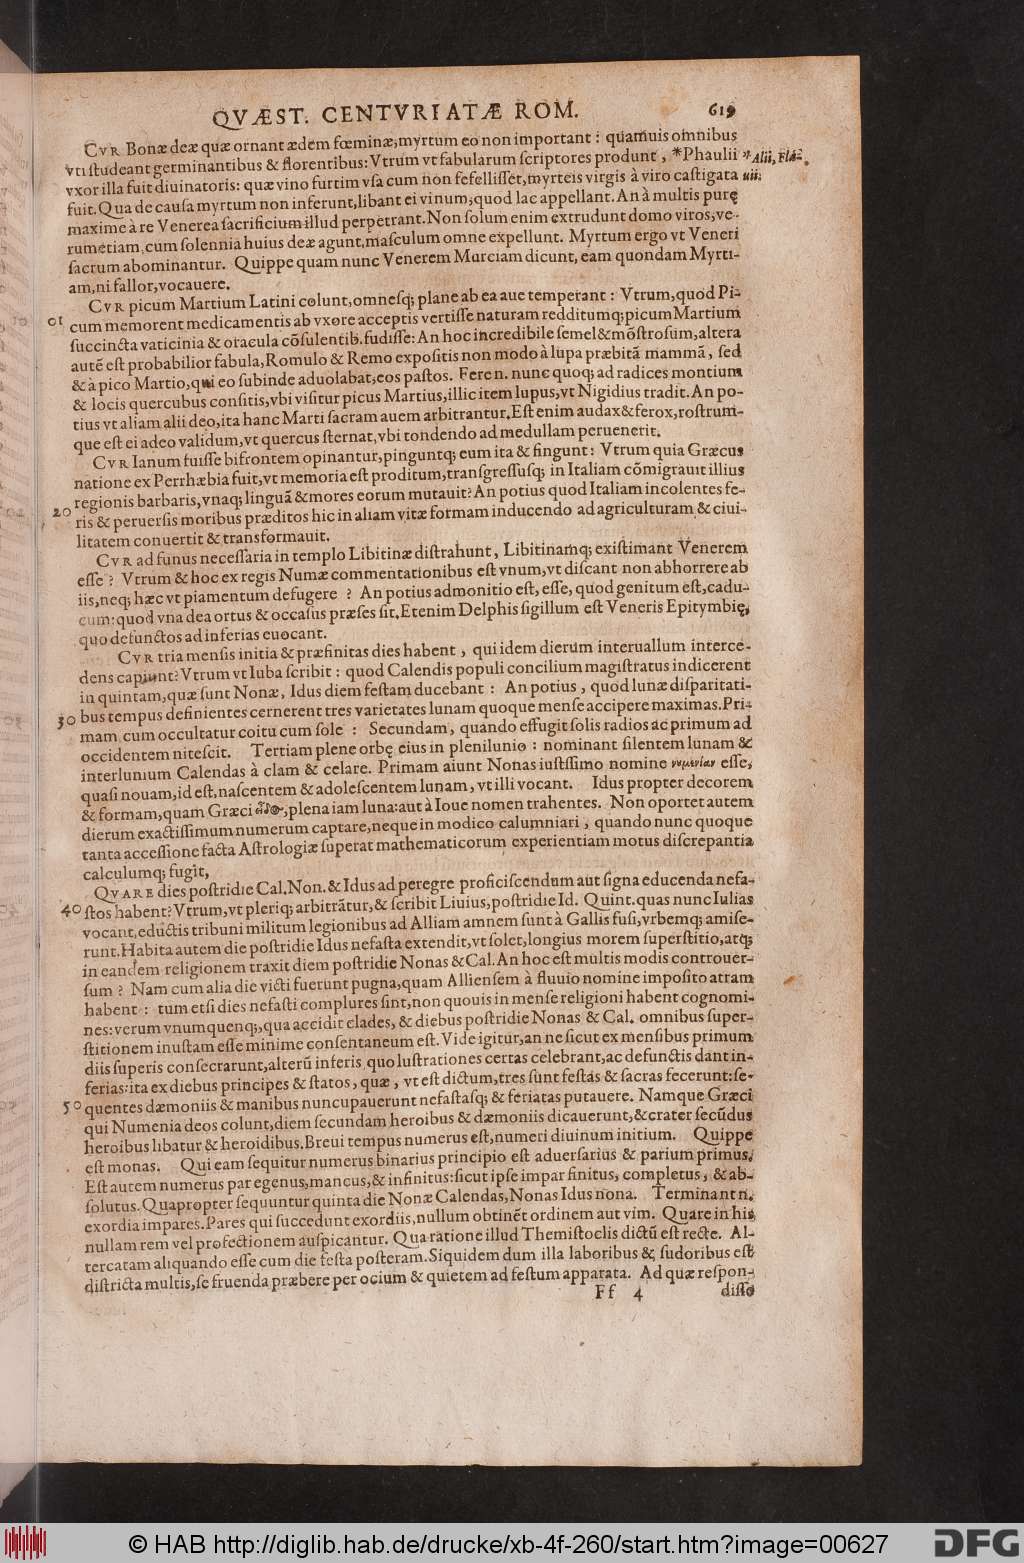 QVÆST. CENTVRIATÆ ROM. 619
CVR Bonæ deæ quæ ornant ædem fœminæ, myrtum eo non important : quamuis omnibus
vti studeant germinantibus & florentibus: Vtrum vt fabularum scriptores produnt, *Phaulii * Alii, Fla-
vxor illa fuit diuinatoris: quæ vino furtim vsa cum non fefellisset, myrteis virgis à viro castigata uii:
fuit. Qua de causa myrtum non inferunt, libant ei vinum, quod lac appellant. An à multis purę
maxime à re Venerea sacrificium illud perpetrant. Non solum enim extrudunt domo viros, ve-
rumetiam, cum solennia huius deæ agunt, masculum omne expellunt. Myrtum ergo vt Veneri
sacrum abominantur. Quippe quam nunc Venerem Murciam dicunt, eam quondam Myrti-
am, ni fallor, vocauere.
CVR picum Martium Latini colunt, omnesq; plane ab ea aue temperant : Vtrum, quod Pi-
01 cum memorent medicamentis ab vxore acceptis vertisse naturam redditumq; picum Martium
succincta vaticinia & oracula cõsulentib. fudisse: An hoc incredibile semel & mõstrosum, altera
autẽ est probabilior fabula, Romulo & Remo expositis non modo à lupa præbitã mammã, sed
& à pico Martio, qui eo subinde aduolabat, eos pastos. Fere n. nunc quoq; ad radices montium
& locis quercubus consitis, vbi visitur picus Martius, illic item lupus, vt Nigidius tradit. An po-
tius vt aliam alii deo, ita hanc Marti sacram auem arbitrantur. Est enim audax & ferox, rostrum-
que est ei adeo validum, vt quercus sternat, vbi tondendo ad medullam peruenerit.
CVR Ianum fuisse bifrontem opinantur, pinguntq; eum ita & fingunt: Vtrum quia Græcus
natione ex Perrhæbia fuit, vt memoria est proditum, transgressusq; in Italiam cõmigrauit illius
regionis barbaris, vnaq; linguã & mores eorum mutauit? An potius quod Italiam incolentes fe-
20 ris & peruersis moribus præditos hic in aliam vitæ formam inducendo ad agriculturam & ciui-
litatem conuertit & transformauit.
CVR ad funus necessaria in templo Libitinæ distrahunt, Libitinamq; existimant Venerem
esse ? Vtrum & hoc ex regis Numæ commentationibus est vnum, vt discant non abhorrere ab
iis, neq; hæc vt piamentum defugere ? An potius admonitio est, esse, quod genitum est, cadu-
cum: quod vna dea ortus & occasus præses sit. Etenim Delphis sigillum est Veneris Epitymbię,
quo defunctos ad inferias euocant.
CVR tria mensis initia & præfinitas dies habent, qui idem dierum interuallum interce-
dens capiunt? Vtrum vt Iuba scribit : quod Calendis populi concilium magistratus indicerent
in quintam, quæ sunt Nonæ, Idus diem festam ducebant : An potius, quod lunæ disparitati-
30 bus tempus definientes cernerent tres varietates lunam quoque mense accipere maximas. Pri-
mam cum occultatur coitu cum sole : Secundam, quando effugit solis radios ac primum ad
occidentem nitescit. Tertiam plene orbę eius in plenilunio : nominant silentem lunam &
interlunium Calendas à clam & celare. Primam aiunt Nonas iustssimo nomine νεμενίαν esse,
quasi nouam, id est, nascentem & adolescentem lunam, vt illi vocant. Idus propter decorem
& formam, quam Græci εἶδος, plena iam luna: aut à Ioue nomen trahentes. Non oportet autem
dierum exactissimum numerum captare, neque in modico calumniari, quando nunc quoque
tanta accessione facta Astrologiæ superat mathematicorum experientiam motus discrepantia
calculumq; fugit,
QVARE dies postridie Cal. Non. & Idus ad peregre proficiscendum aut signa educenda nefa-
40 stos habent? Vtrum, vt pleriq; arbitrãtur, & scribit Liuius, postridie Id. Quint. quas nunc Iulias
vocant, eductis tribuni militum legionibus ad Alliam amnem sunt à Gallis fusi, vrbemq; amise-
runt. Habita autem die postridie Idus nefasta extendit, vt solet, longius morem superstitio, atq;
in eandem religionem traxit diem postridie Nonas & Cal. An hoc est multis modis controuer-
sum ? Nam cum alia die victi fuerunt pugna, quam Alliensem à fluuio nomine imposito atram
habent : tum etsi dies nefasti complures sint, non quouis in mense religioni habent cognomi-
nes: verum vnumquenq;, qua accidit clades, & diebus postridie Nonas & Cal. omnibus super-
stitionem inustam esse minime consentaneum est. Vide igitur, an ne sicut ex mensibus primum
diis superis consecrarunt, alterũ inferis quo lustrationes certas celebrant, ac defunctis dant in-
ferias: ita ex diebus principes & statos, quæ, vt est dictum, tres sunt festas & sacras fecerunt: se-
50 quentes dæmoniis & manibus nuncupauerunt nefastasq; & feriatas putauere. Namque Græci
qui Numenia deos colunt, diem secundam heroibus & dæmoniis dicauerunt, & crater secũdus
heroibus libatur & heroidibus. Breui tempus numerus est, numeri diuinum initium. Quippe
est monas. Qui eam sequitur numerus binarius principio est aduersarius & parium primus.
Est autem numerus par egenus, mancus, & infinitus: sicut ipse impar finitus, completus, & ab-
solutus. Quapropter sequuntur quinta die Nonæ Calendas, Nonas Idus nona. Terminant n.
exordia impares. Pares qui succedunt exordiis, nullum obtinẽt ordinem aut vim. Quare in his
nullam rem vel profectionem auspicantur. Qua ratione illud Themistoclis dictũ est recte. Al-
tercatam aliquando esse cum die festa posteram. Siquidem dum illa laboribus & sudoribus est
districta multis, se fruenda præbere per ocium & quietem ad festum apparata. Ad quæ respon-
Ff 4 disse
© HAB http://diglib.hab.de/drucke/xb-4f-260/start.htm?image=00627
DFG